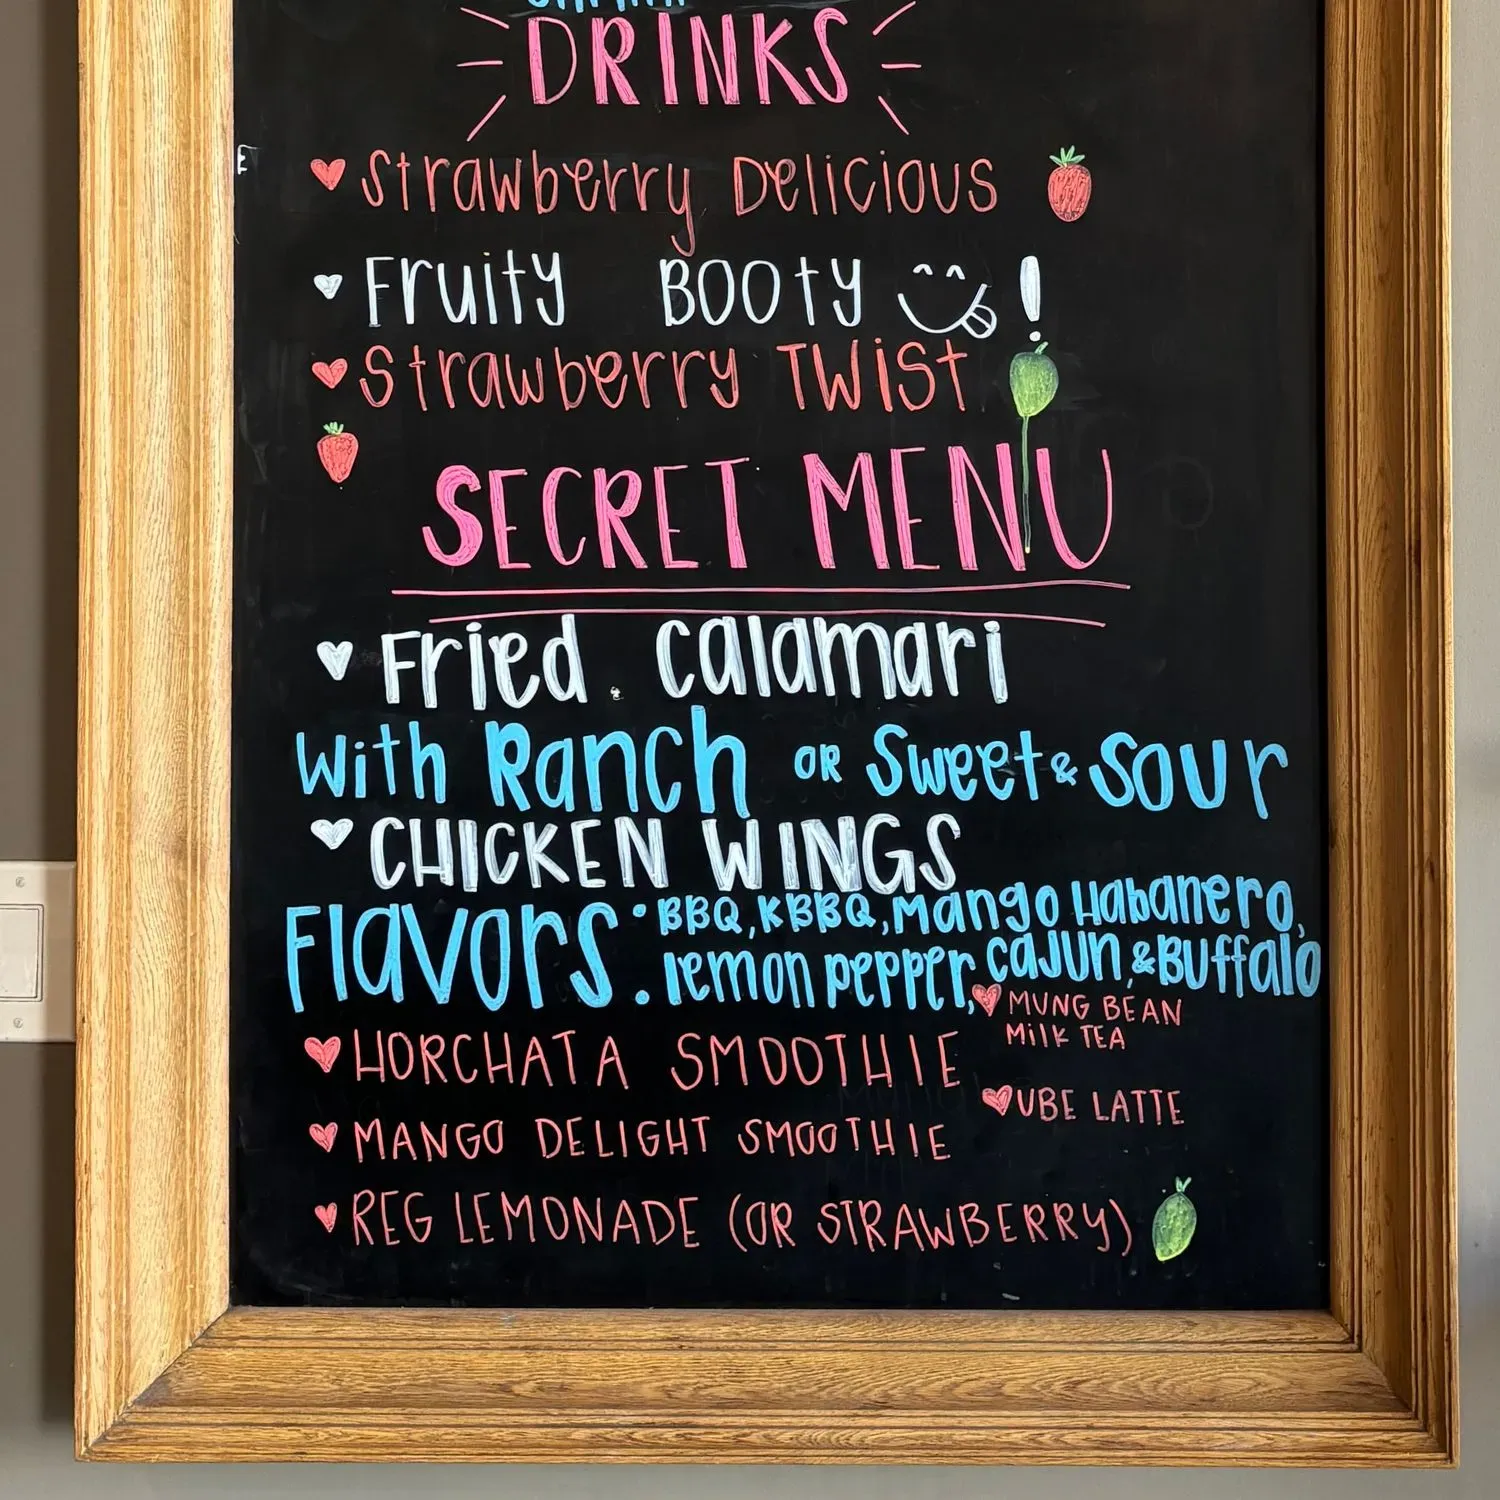 DRINKS
Strawberry Delicious
Fruity Booty !
Strawberry Twist
SECRET MENU
Fried Calamari
With Ranch OR Sweet & Sour
CHICKEN WINGS
Flavors: BBQ, KBBQ, Mango Habanero,
lemon pepper, Cajun, & Buffalo
MUNG BEAN
MILK TEA
HORCHATA SMOOTHIE
UBE LATTE
MANGO DELIGHT SMOOTHIE
REG LEMONADE (OR STRAWBERRY)